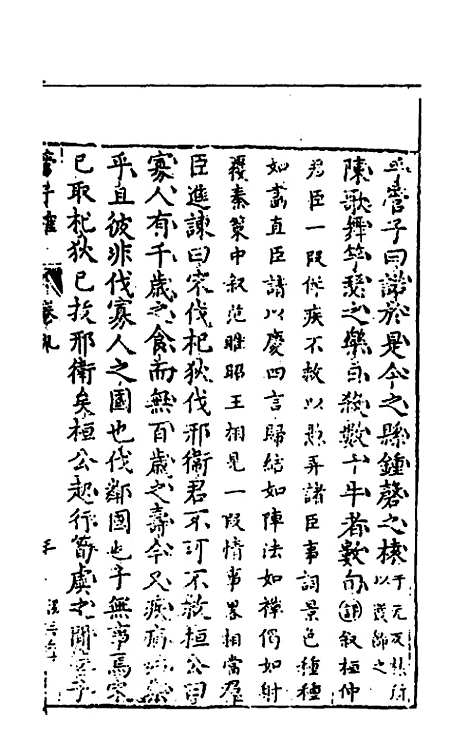 平管子曰諾於是令之縣鍾磬之榬于元反𣘻所以嚴飾之
陳歌舞竽瑟之樂日殺數十牛者數旬評叙桓仲
君臣一段佯疾不救以愚弄諸臣事詞景色種種
如畵直臣請以慶四言歸結如陣法如禪偈如射
覆秦策中叙范雎昭王相見一段情事畧相當羣
臣進諫曰宋伐杞狄伐邢衞君不可不救桓公曰
寡人有千歲之食而無百歲之壽今又疾病姑樂
乎且彼非伐寡人之國也伐鄰國也子無事焉宋
已取杞狄已拔邢衛矣桓公起行筍虡之間管子
管子榷 卷九 三